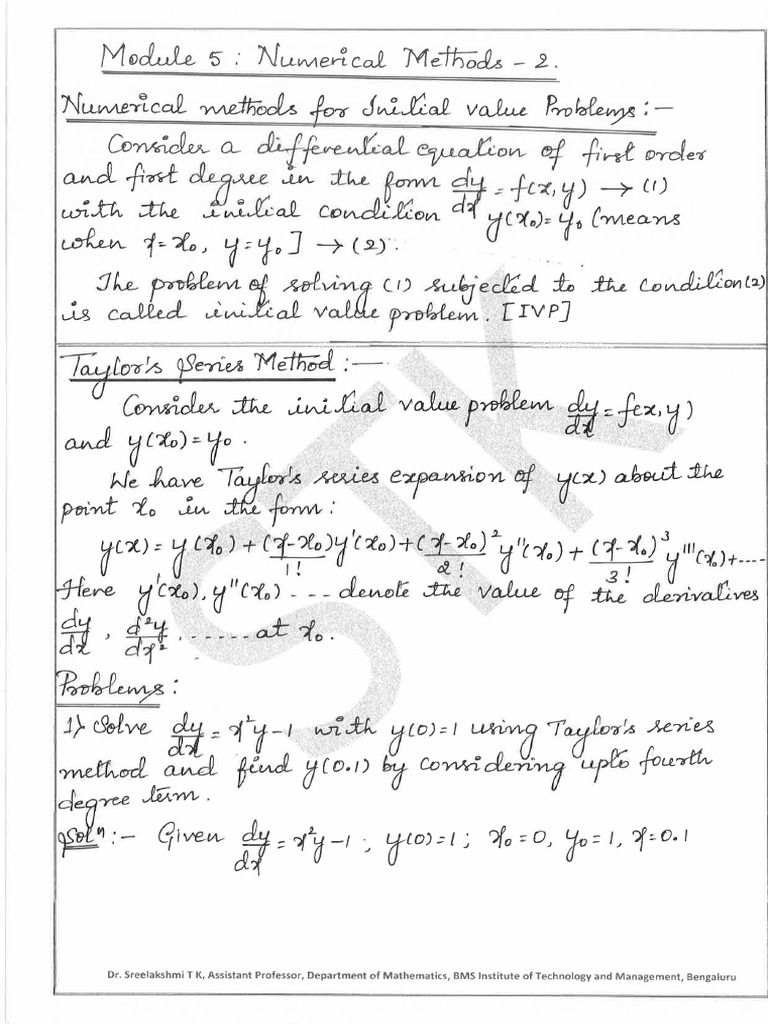 Module 5 : Numerical Methods - 2.
Numerical methods for Initial value Problems :-
Consider a differential equation of first order
and first degree in the form dy/dx = f(x, y) → (1)
with the initial condition y(x₀) = y₀ (means
when x = x₀, y = y₀ ] → (2).
The problem of solving (1) subjected to the condition (2)
is called initial value problem. [IVP]
Taylor's Series Method :-
Consider the initial value problem dy/dx = f(x, y)
and y(x₀) = y₀.
We have Taylor's series expansion of y(x) about the
point x₀ in the form :
y(x) = y(x₀) + (x-x₀)/1! y'(x₀) + (x-x₀)²/2! y''(x₀) + (x-x₀)³/3! y'''(x₀) + ....
Here y'(x₀), y''(x₀) ... denote the value of the derivatives
dy/dx , d²y/dx² , ...... at x₀.
Problems :
1) Solve dy/dx = x²y-1 with y(0)=1 using Taylor's series
method and find y(0.1) by considering upto fourth
degree term.
Solⁿ :- Given dy/dx = x²y-1 ; y(0)=1 ; x₀=0, y₀=1, x=0.1
STK
Dr. Sreelakshmi T K, Assistant Professor, Department of Mathematics, BMS Institute of Technology and Management, Bengaluru